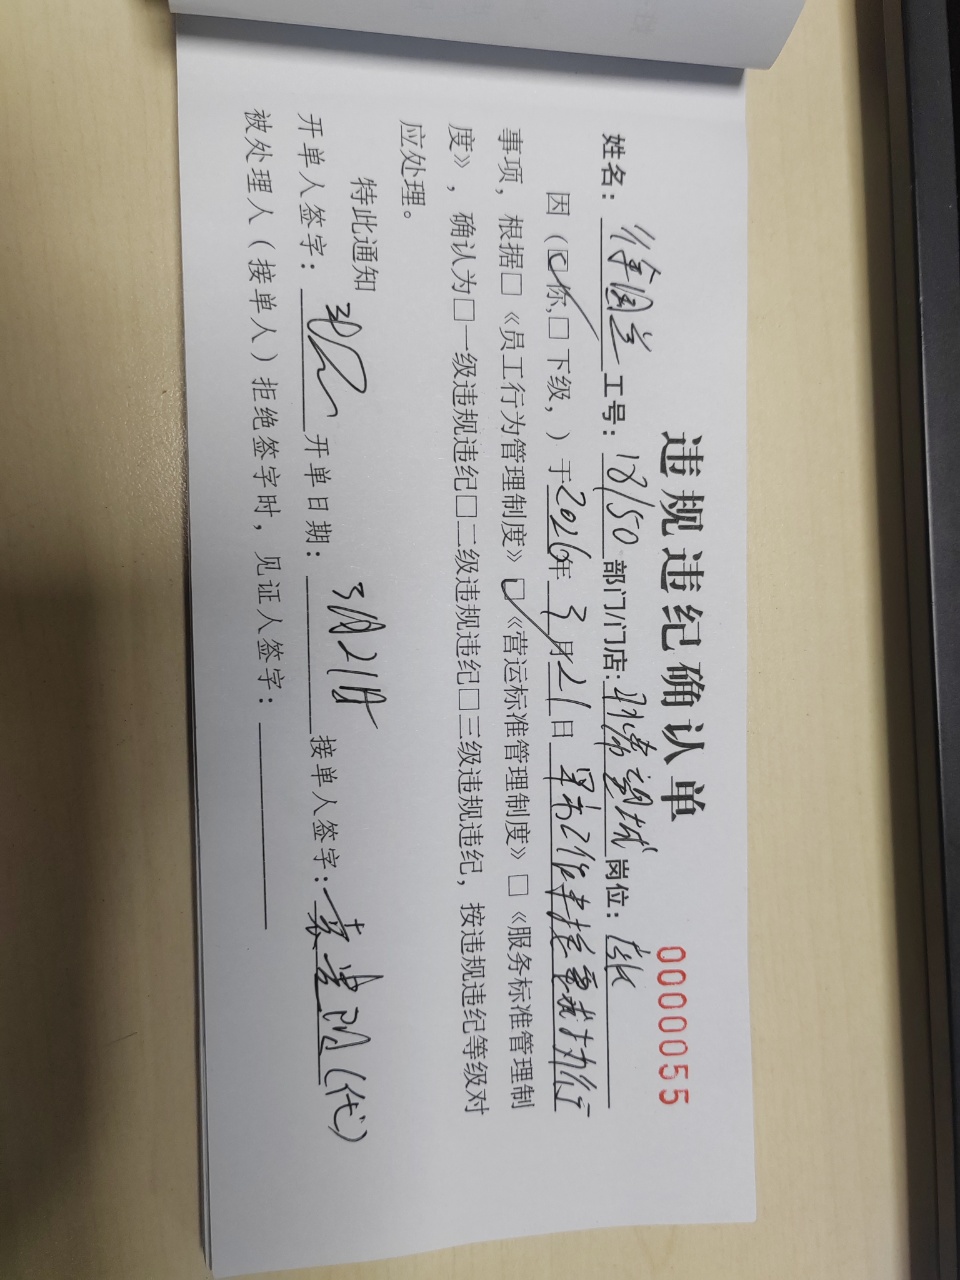 违规违纪确认单 0000055
姓名：徐国兰 工号：18150 部门/门店： 岗位：
因（☑你,□下级，）于2026年3月21日
事项，根据□《员工行为管理制度》☑《营运标准管理制度》□《服务标准管理制
度》，确认为□一级违规违纪□二级违规违纪□三级违规违纪，按违规违纪等级对
应处理。
特此通知
开单人签字： 开单日期：3月21日 接单人签字： （代）
被处理人（接单人）拒绝签字时，见证人签字：